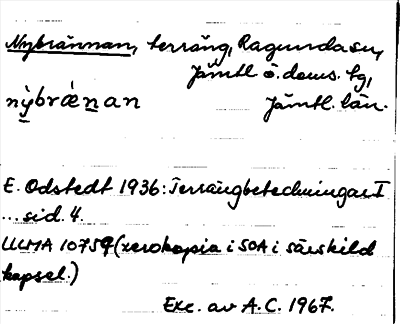 Nybrännan, terräng, Ragunda sn,
Jämtl. ö. doms. tg,
nỳbrǽnan Jämtl. län.
E. Odstedt 1936: Terrängbeteckningar I
... sid. 4.
ULMA 10759 (xerokopia i SOA i särskild
kapsel.)
Exc. av A.C. 1967.